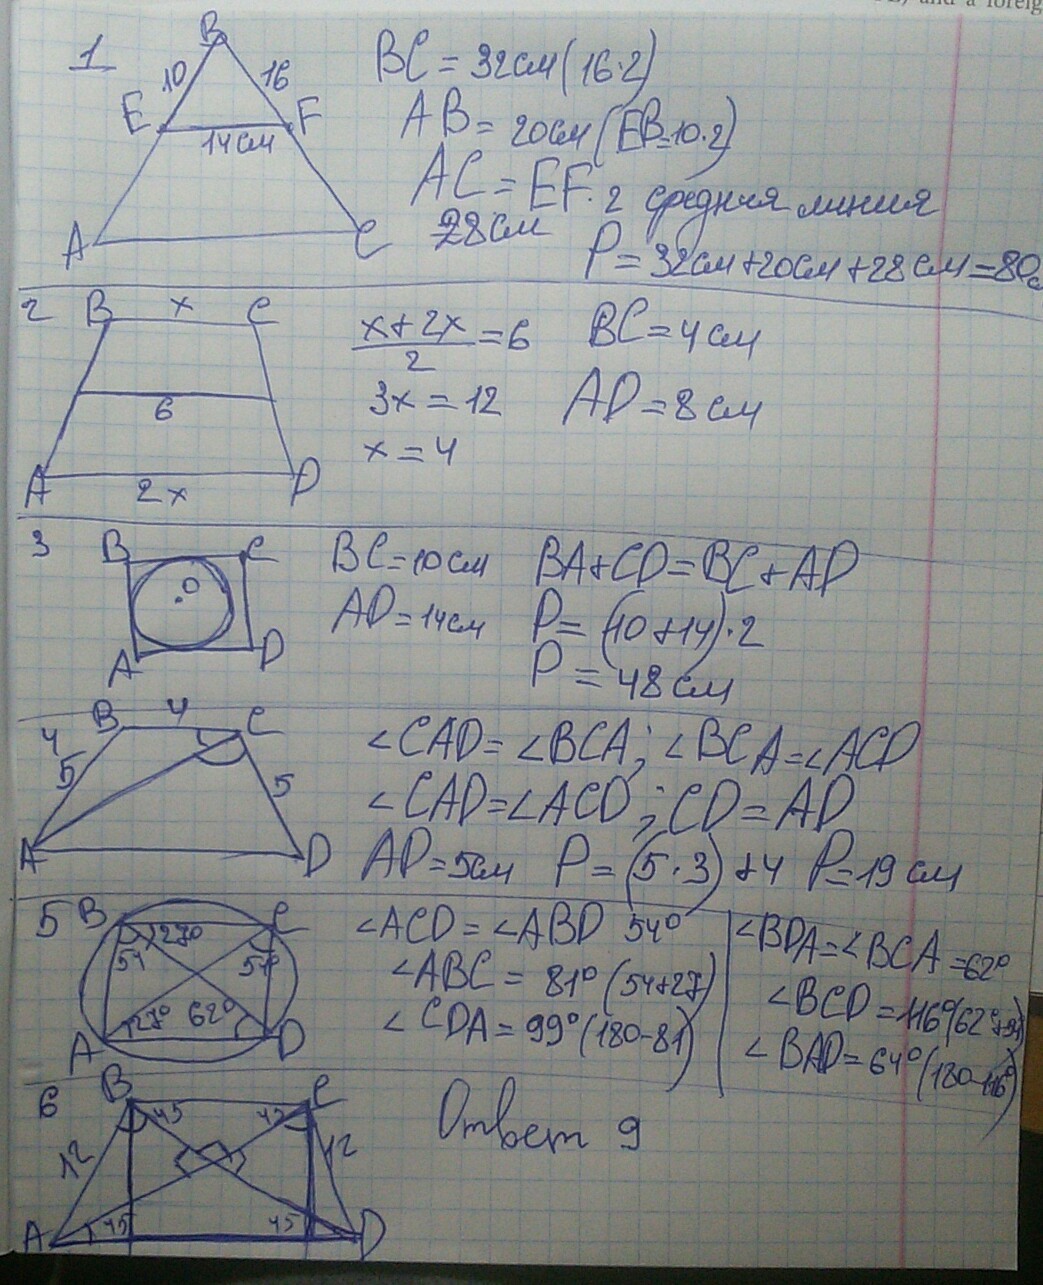 and a foreig
1
B
10
16
E
F
14см
A
C
BC = 32см (16·2)
AB = 20см (EB=10·2)
AC = EF·2 средняя линия
28см
P = 32см+20см+28см=80с
2
B x C
6
A 2x D
x+2x
2
=6
3x=12
x=4
BC=4см
AD=8см
3
B C
O
A D
BC=10см
AD=14см
BA+CD=BC+AD
P=(10+14)·2
P=48см
4
B 4 C
5
5
A D
∠CAD=∠BCA; ∠BCA=∠ACD
∠CAD=∠ACD; CD=AD
AD=5см P=(5·3)+4 P=19см
5
B C
27°
54
54
27° 62°
A D
∠ACD=∠ABD 54°
∠ABC=81° (54+27)
∠CDA=99° (180-81)
∠BDA=∠BCA=62°
∠BCD=116° (62+54)
∠BAD=64° (180-116°)
6
B C
45 45
12 12
45 45
A D
Ответ 9